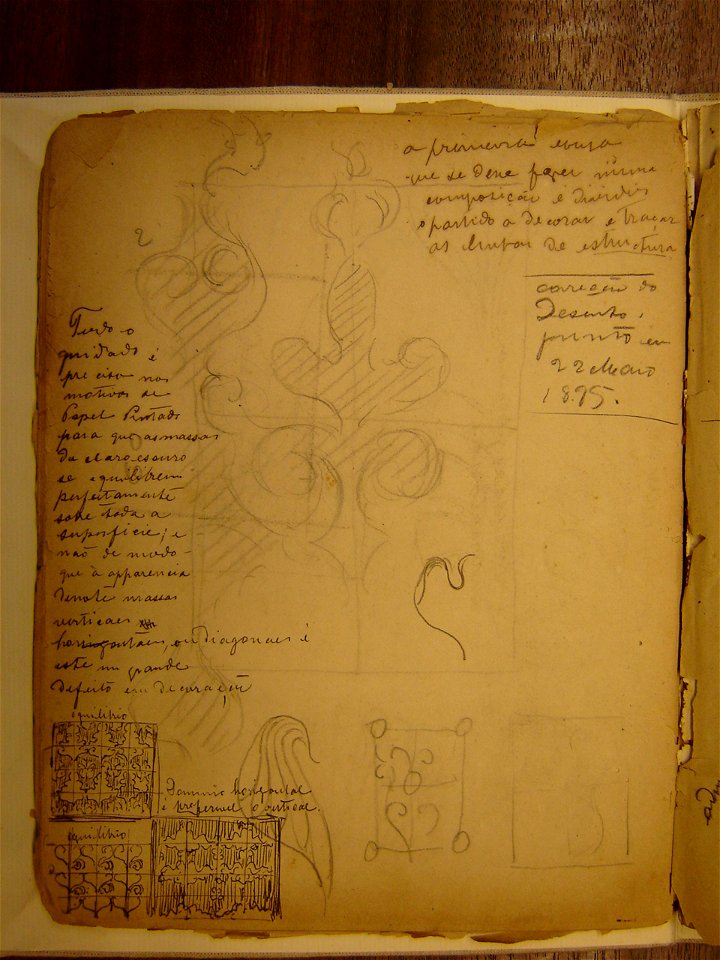 a primeira cousa
que se deve fazer n'uma
composição é dividir
o partido a decorar e traçar
as linhas de estructura
correcção do
Desenho,
prompto em
22 Maio
1895.
2
Todo o
cuidado é
preciso nos
motivos de
Papel Pintado
para que as massas
de claro escuro
se equilibrem
perfeitamente
sobre toda a
superficie; e
não de modo
que á apparencia
denote massas
verticaes
horizontaes, ou diagonaes é
este um grande
defeito em decoração
equilibrio
Dominio horizontal
é preferivel o vertical.
equilibrio